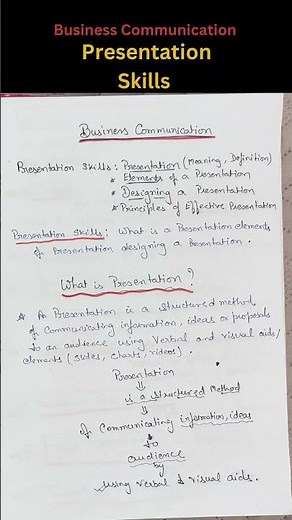 Business Communication
Presentation
Skills
Business Communication
Presentation Skills : Presentation (Meaning, Definition)
* Elements of a Presentation
* Designing a Presentation
* Principles of Effective Presentation
Presentation Skills : What is a Presentation elements
of Presentation designing a Presentation.
What is Presentation?
* A Presentation is a structured method
of communicating information, ideas or proposals
to an audience using Verbal and visual aids/
elements (slides, charts, videos).
Presentation
⇓
is a structured Method
⇓
of Communicating information, ideas
to
audience
by
using verbal & visual aids.